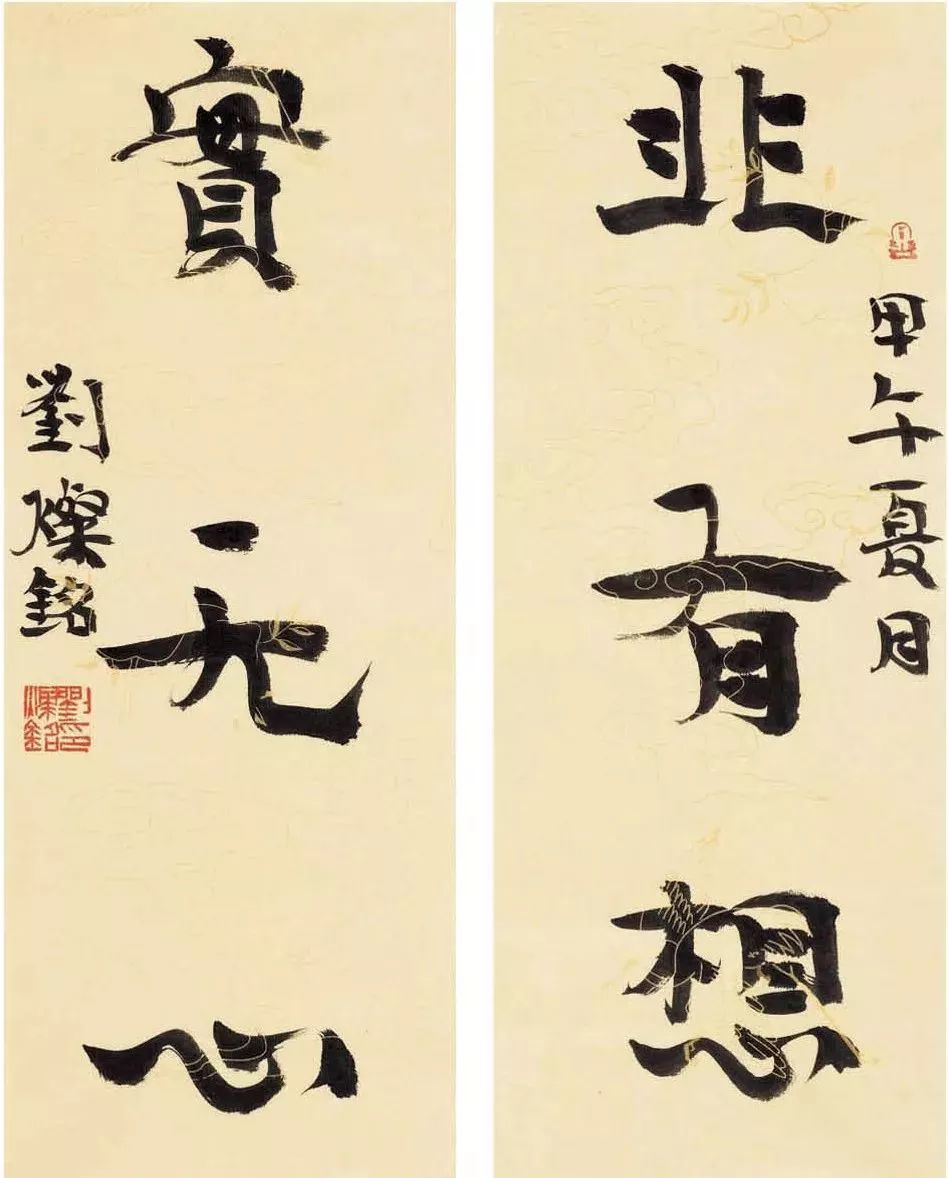 甲午夏月
非有想
實无心
劉燦銘
劉燦銘印